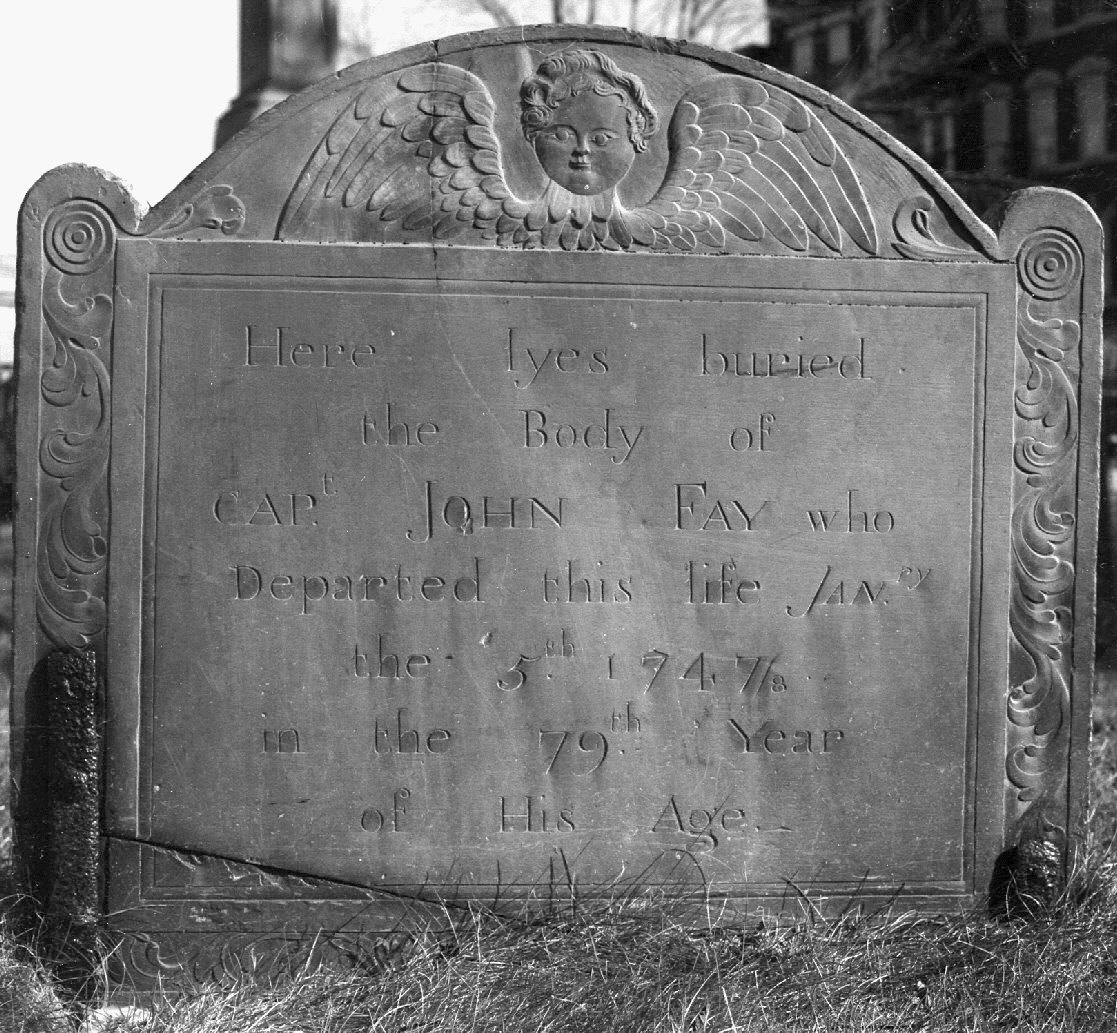 Here lyes buried
the Body of
CAP.t JOHN FAY who
Departed this life JAN.ry
the 5th. 1747/8
in the 79th. Year
of His Age